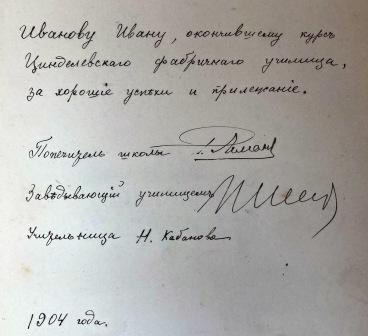 Иванову Ивану, окончившему курсъ
Цинделевскаго фабричнаго училища,
за хорошіе успѣхи и прилежаніе.
Попечитель школы
Завѣдывающій училищемъ
Учительница Н. Кабанова
1904 года.